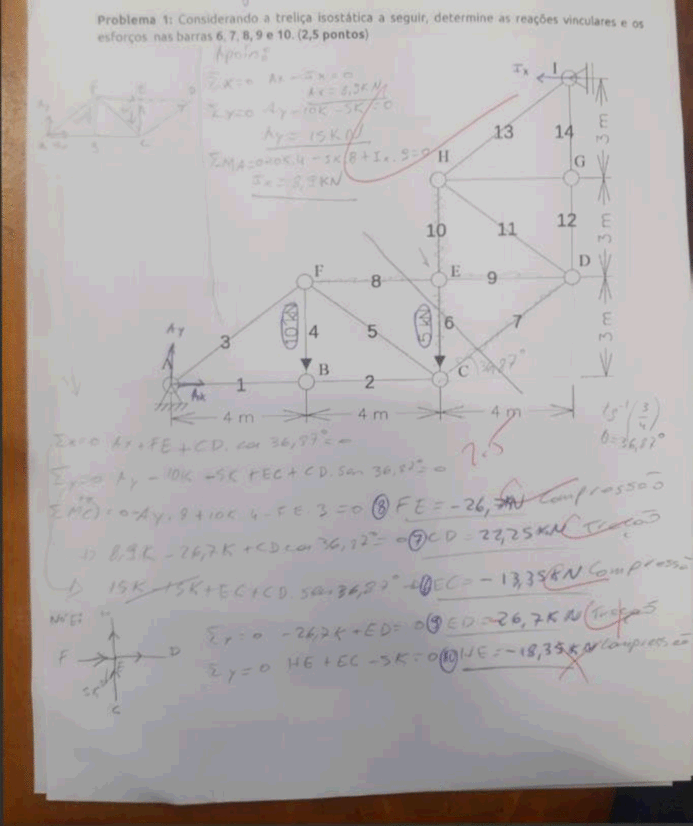 Problema 1: Considerando a treliça isostática a seguir, determine as reações vinculares e os
esforços nas barras 6, 7, 8, 9 e 10. (2,5 pontos)
Apoio:
Σx=0 Ax - Ix = 0
Σy=0 Ay - 10K - 5K = 0
Ay = 15KN
Ix = 8,9KN
Ix
I
13
14
3 m
H
G
10
11
12
3 m
F
8
E
9
D
10KN
5KN
3
4
5
6
7
3 m
Ay
A
Ax
1
B
2
C
36,87°
4 m
4 m
4 m
tg⁻¹(3/4)
θ=36,87°
2.5
Σx=0 Ax+FE+CD. cos 36,87°=0
Σy=0 Ay - 10K - 5K + EC + CD. sen 36,87°=0
ΣM(C)=0 -Ay. 8 + 10K. 4 - FE. 3 = 0 (8) FE = -26,7KN Compressão
8,9K - 26,7K + CD cos 36,87° = 0 (7) CD = 22,25KN Tração
15K - 15K + EC + CD. sen 36,87° (6) EC = -13,35KN Compressão
Nó E:
F
D
E
5K
C
Σx=0 -26,7K + ED = 0 (9) ED = 26,7KN Tração
Σy=0 HE + EC - 5K = 0 (10) HE = -18,35KN Compressão